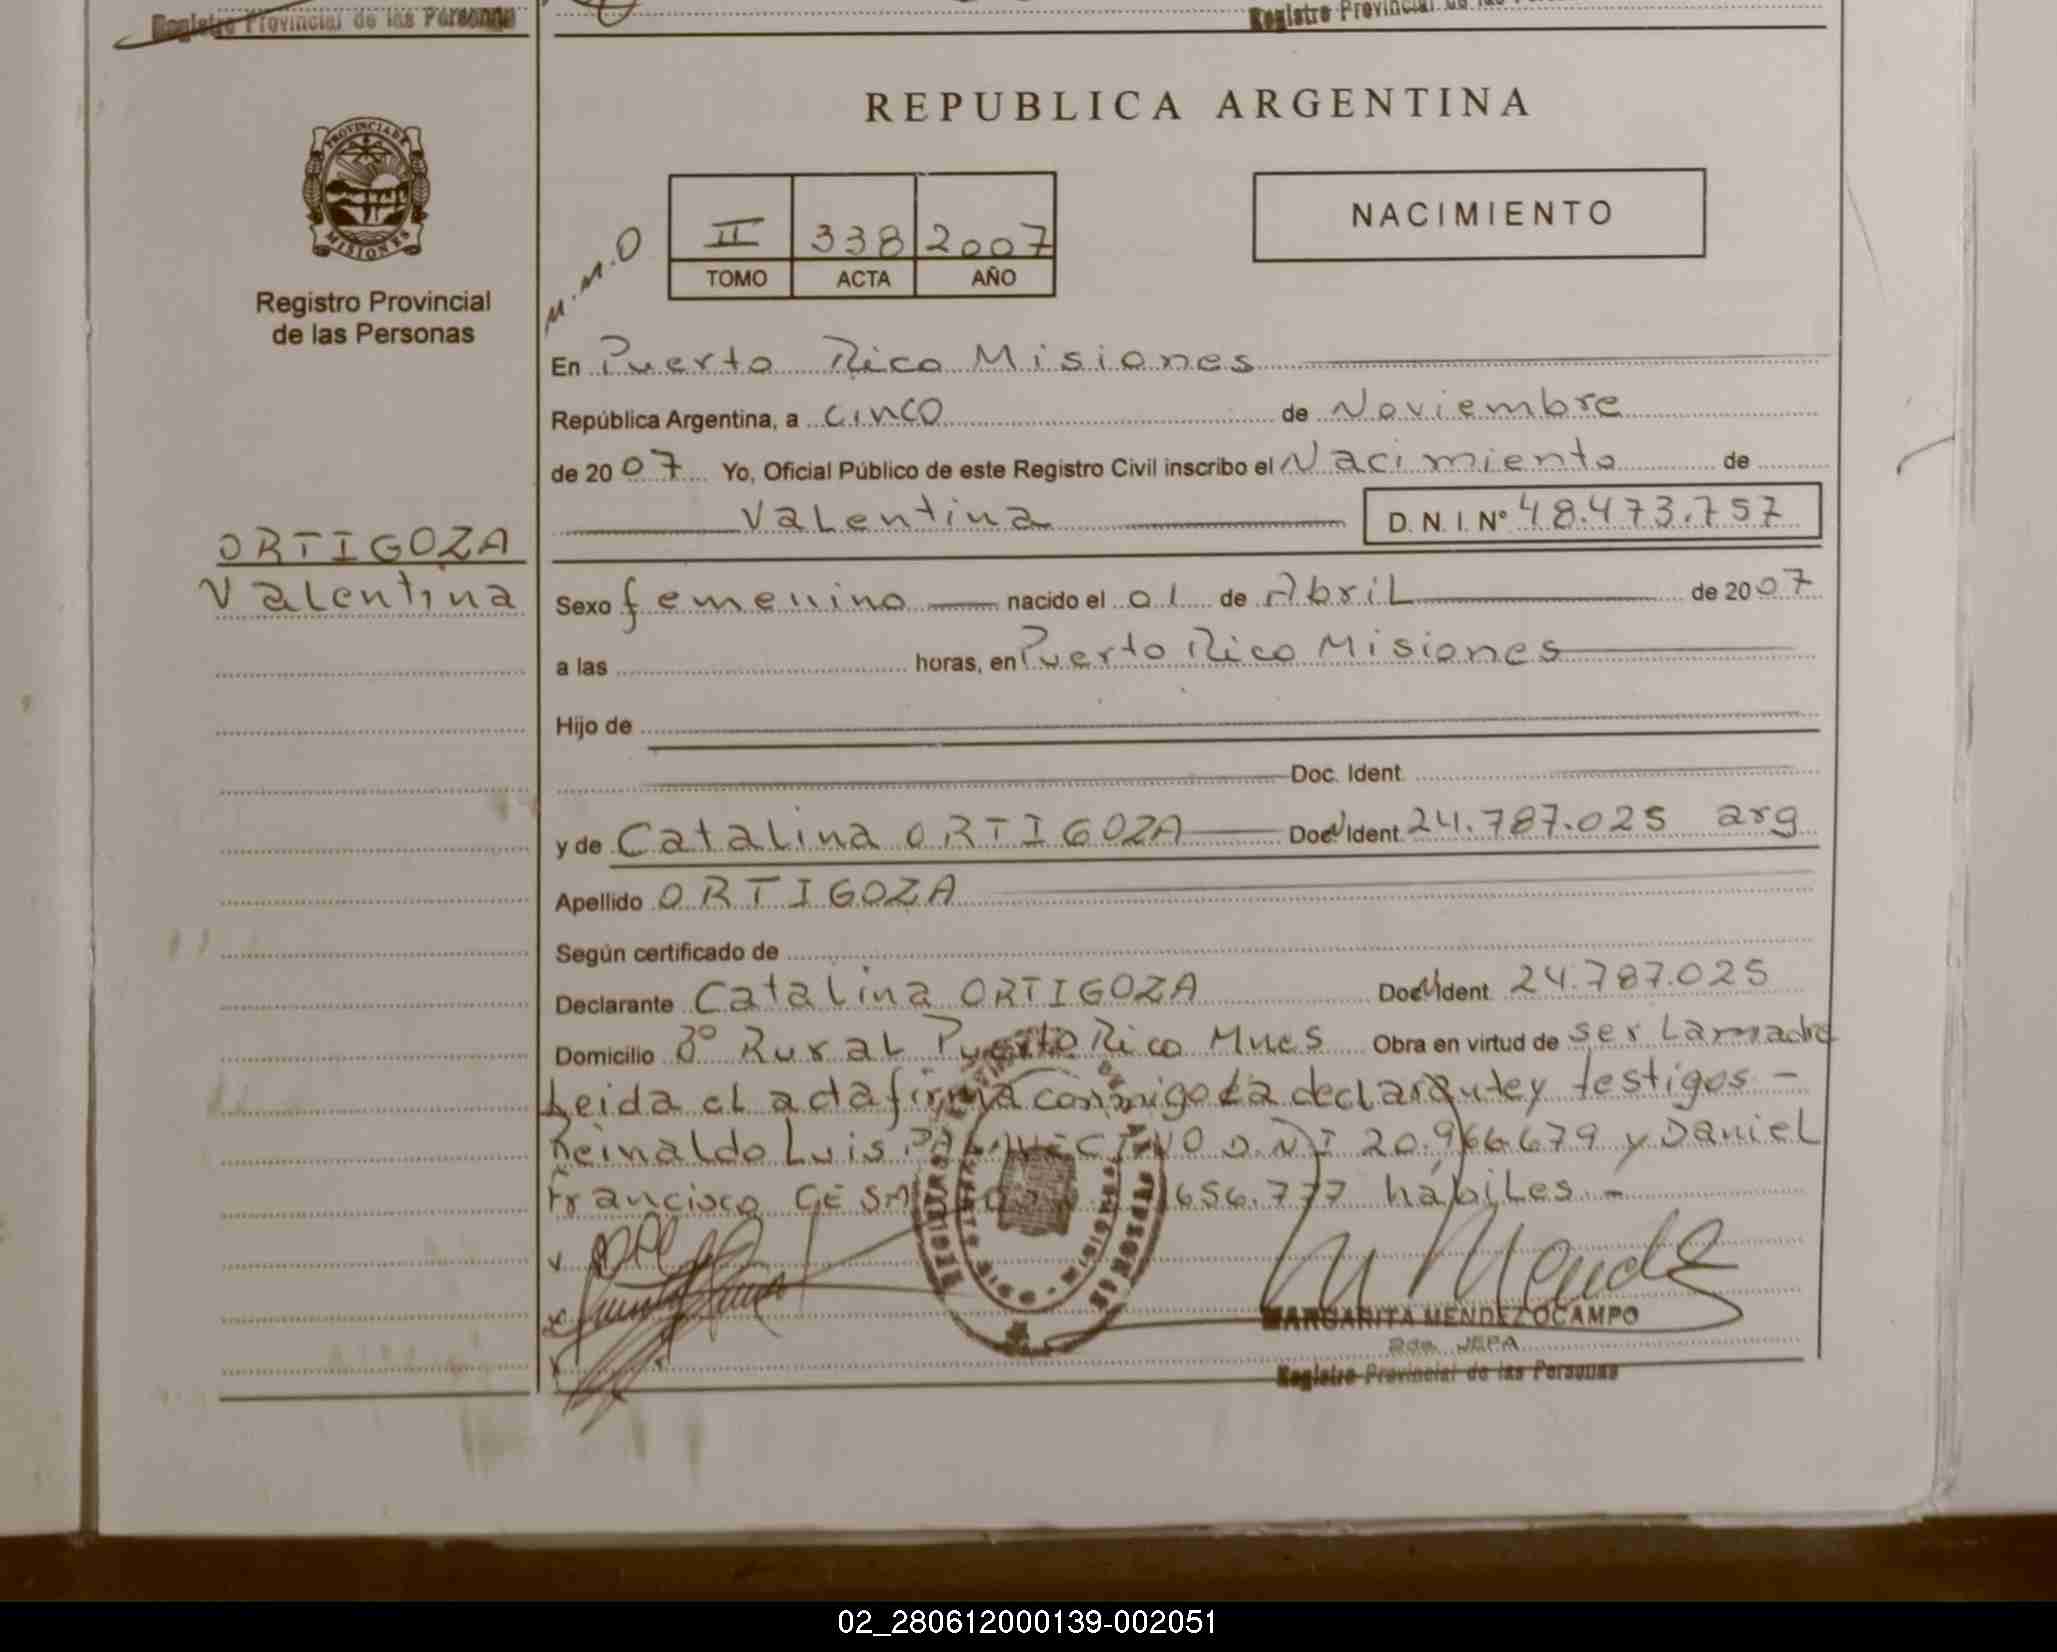 Registro Provincial de las Personas
Registro Provincial de las Personas
REPUBLICA ARGENTINA
PROVINCIA DE
MISIONES
Registro Provincial
de las Personas
M.M.O
II 338 2007
TOMO ACTA AÑO
NACIMIENTO
En Puerto Rico Misiones
República Argentina, a cinco de Noviembre
de 2007 Yo, Oficial Público de este Registro Civil inscribo el Nacimiento de
Valentina D. N. I. Nº 48.473.757
ORTIGOZA
Valentina
Sexo femenino nacido el 01 de Abril de 2007
a las horas, en Puerto Rico Misiones
Hijo de
Doc. Ident.
y de Catalina ORTIGOZA Doc. Ident. 24.787.025 arg
Apellido ORTIGOZA
Según certificado de
Declarante Catalina ORTIGOZA Doc. Ident. 24.787.025
Domicilio Bº Rural Puerto Rico Mnes Obra en virtud de ser La madre
Leida el acta firma conmigo La declarante y testigos -
Reinaldo Luis D.N.I 20.966.679 y Daniel
Francisco 656.777 hábiles -
M Mendez
MARGARITA MENDEZ OCAMPO
2da. JEFA
Registro Provincial de las Personas
02_280612000139-002051